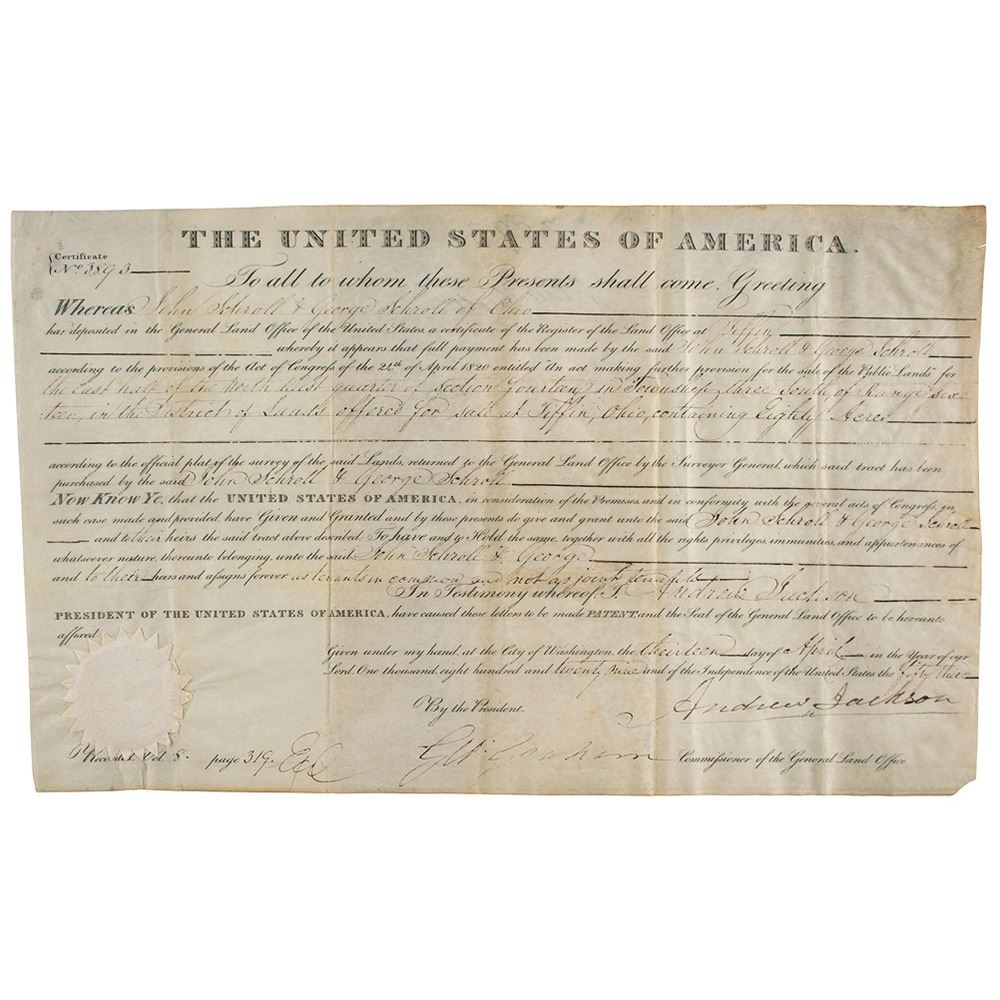 THE UNITED STATES OF AMERICA.
Certificate
No. 3893
To all to whom these Presents shall come, Greeting
Whereas John Schroll & George Schroll of Ohio
has deposited in the General Land Office of the United States, a certificate of the Register of the Land Office at Tiffin
whereby it appears that full payment has been made by the said John Schroll & George Schroll
according to the provisions of the Act of Congress of the 24th of April 1820 entitled "An act making further provision for the sale of the Public Lands" for
the East half of the North East quarter of Section fourteen in Township three South of Range Six
teen, in the District of Lands offered for sale at Tiffin, Ohio, containing Eighty Acres
according to the official plat of the survey of the said Lands, returned to the General Land Office by the Surveyor General, which said tract has been
purchased by the said John Schroll & George Schroll
Now Know Ye, that the UNITED STATES OF AMERICA, in consideration of the Premises, and in conformity with the several acts of Congress, in
such case made and provided, have Given and Granted and by these presents do give and grant unto the said John Schroll & George Schroll
and to their heirs the said tract above described: To have and to Hold the same, together with all the rights, privileges, immunities, and appurtenances of
whatsoever nature, thereunto belonging, unto the said John Schroll & George
and to their heirs and assigns forever as tenants in common and not as joint tenants
In Testimony whereof, I, Andrew Jackson
PRESIDENT OF THE UNITED STATES OF AMERICA, have caused these letters to be made PATENT, and the Seal of the General Land Office to be hereunto
affixed.
Given under my hand, at the City of Washington, the thirteen day of April in the Year of our
Lord, One thousand, eight hundred and twenty nine and of the Independence of the United States the fifty third
Andrew Jackson
By the President.
G W Graham Commissioner of the General Land Office
Recorded, Vol 8. page 319.